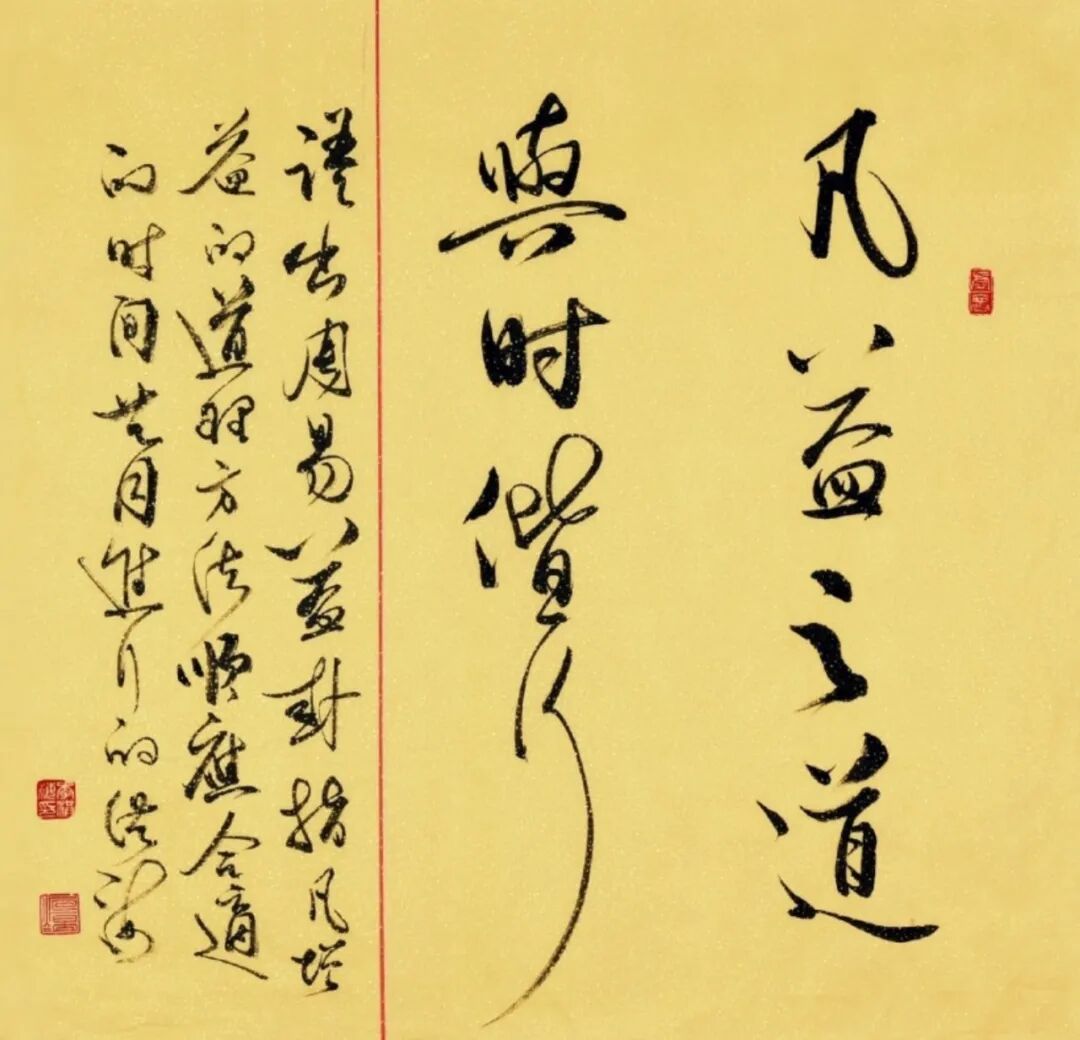 凡益之道
與时偕行
语出周易益卦指凡增
益的道理方法顺應合適
的时间共同進行的